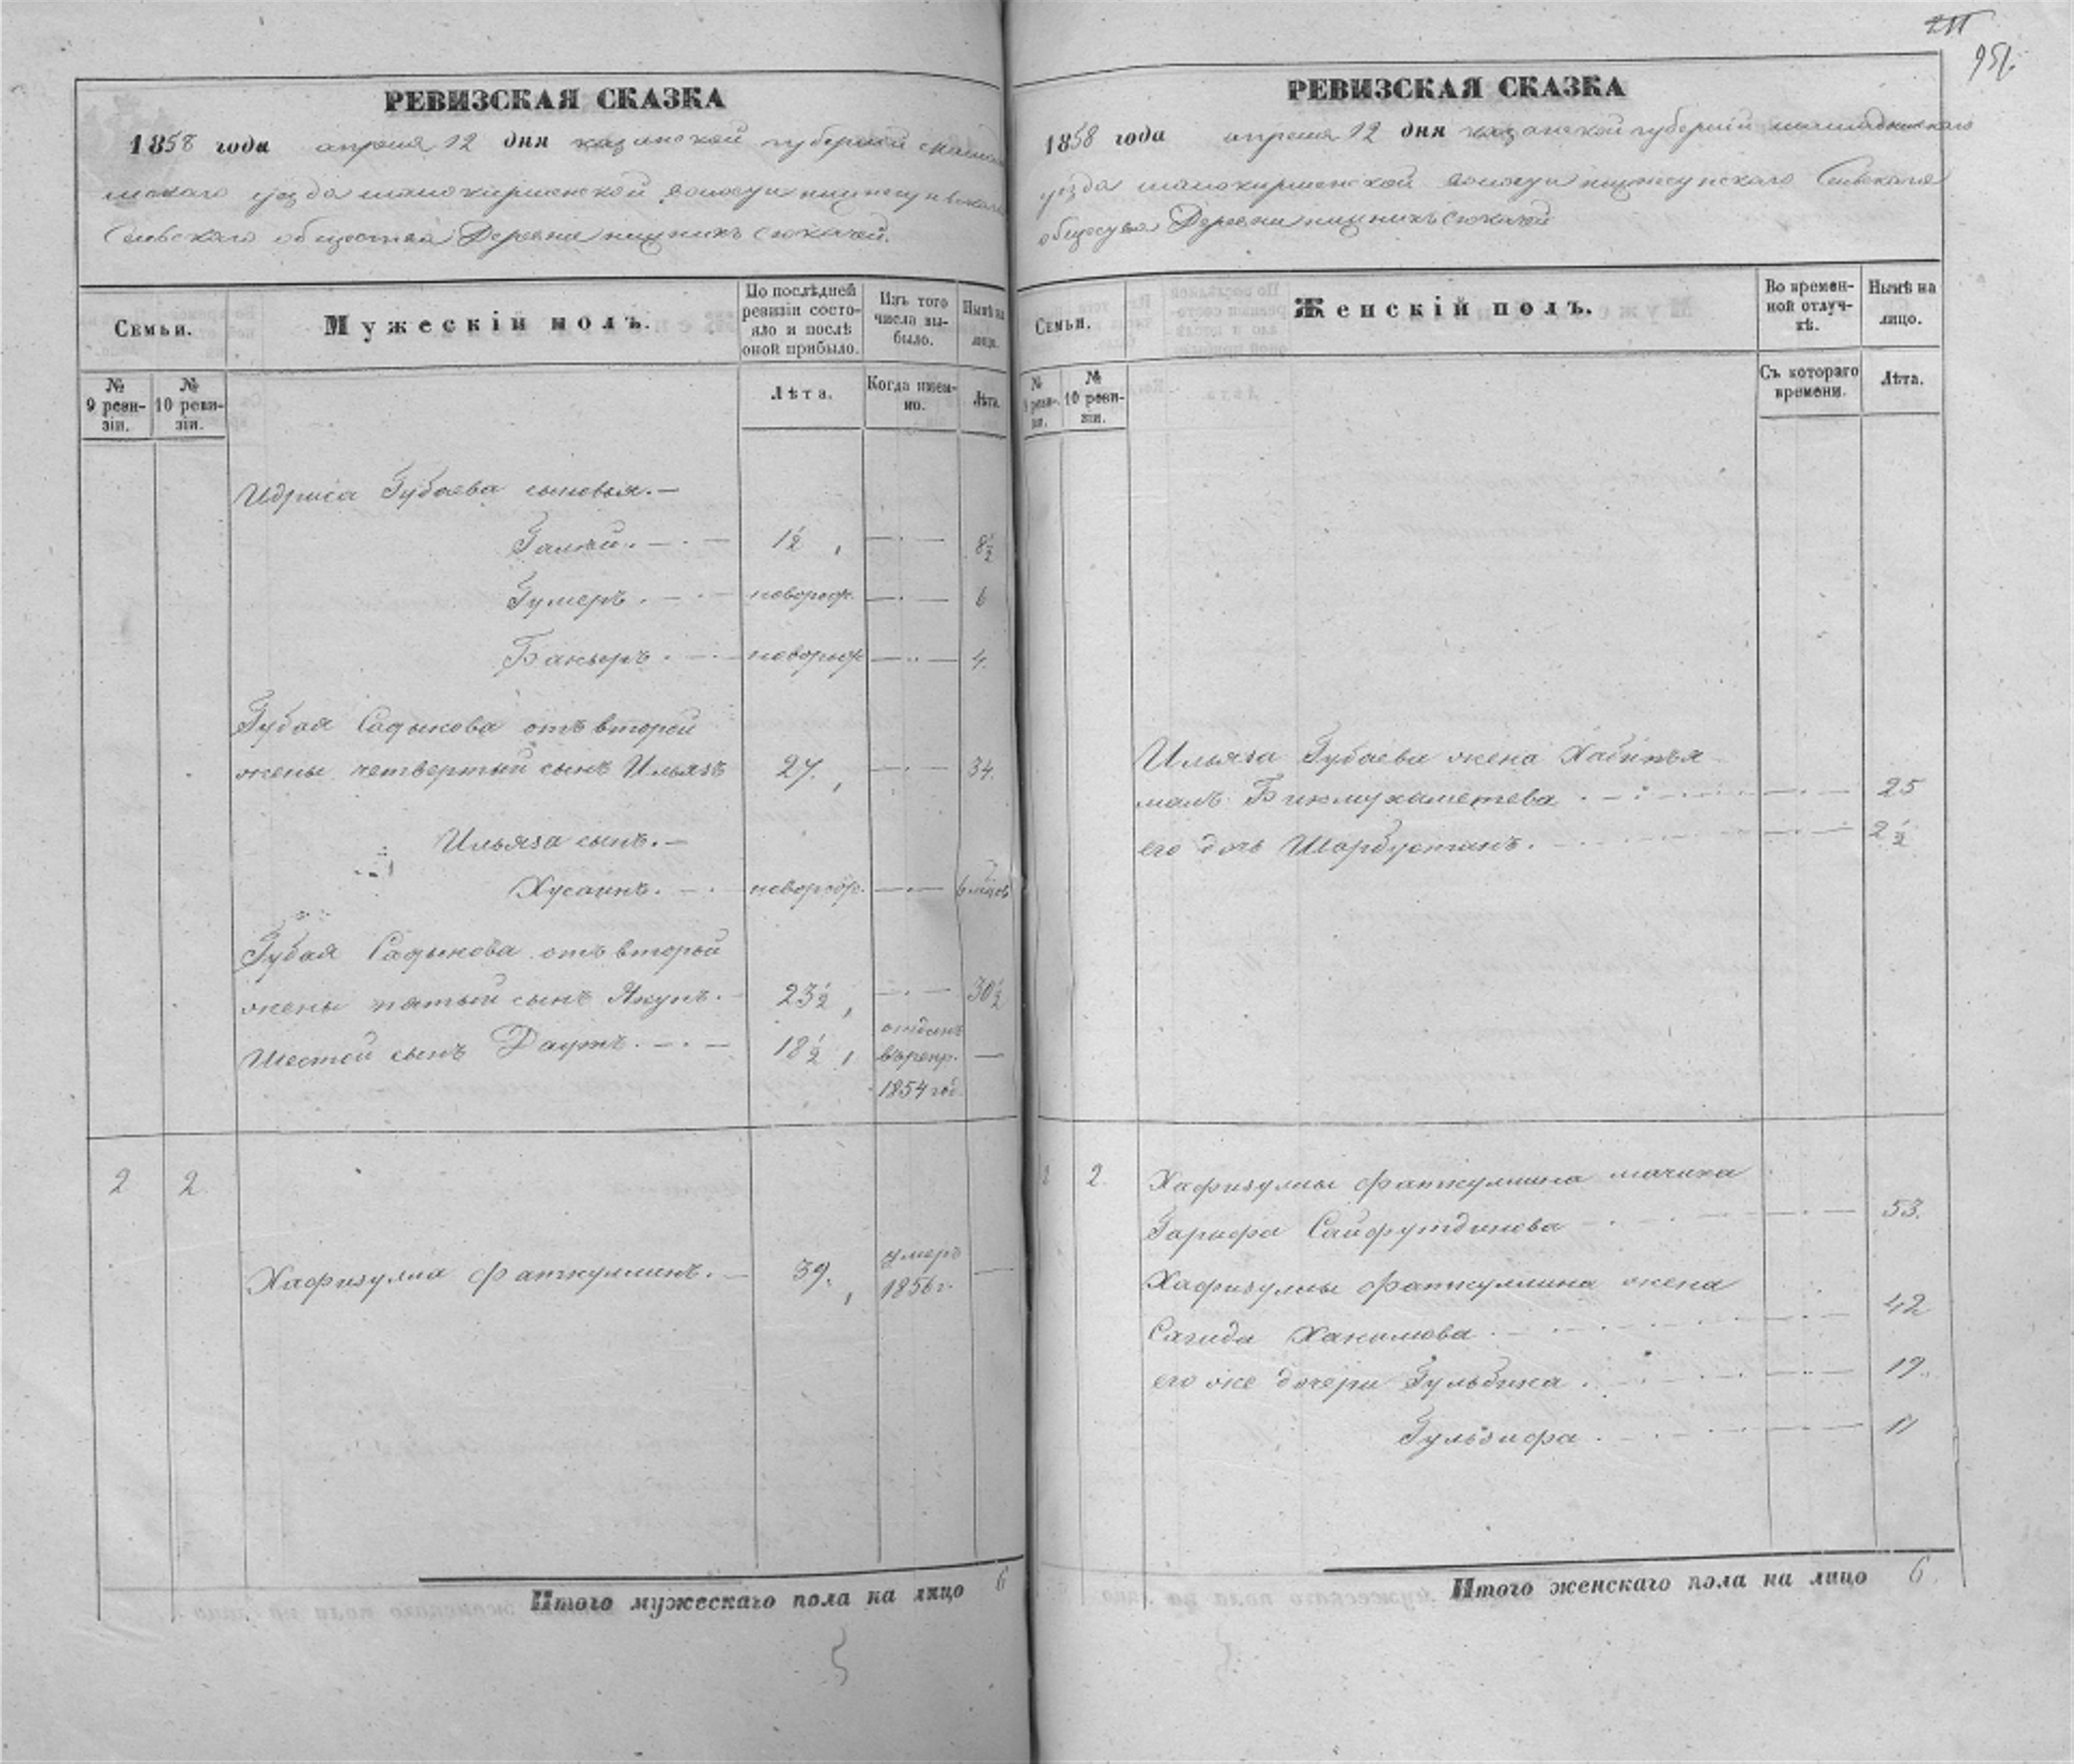 РЕВИЗСКАЯ СКАЗКА
1858 года апреля 12 дня казанской губернии мамад
ышскаго уезда малокирменской волости нижнесунскаго
Сельскаго общества Деревни нижнихъ Сюкачей.
Семьи.
Мужескій полъ.
По послѣдней ревизіи состояло и послѣ оной прибыло.
Изъ того числа выбыло.
Нынѣ на лицо.
№ 9 ревизіи.
№ 10 ревизіи.
Лѣта.
Когда именно.
Лѣта.
Идриса Губаева сыновья.—
Галѣй. 1½ 8½
Гумеръ. новорож. 6
Бакыръ. новорож 4.
Губая Садыкова отъ второй
жены четвертый сынъ Ильязъ 27. 34.
Ильяза сынъ.—
Хусаинъ. новорож. 6 мѣсяв
Губая Садыкова отъ второй
жены пятый сынъ Якупъ. 23½ 30½
Шестой сынъ Даутъ. 18½ отданъ
въ рекр. —
1854 год.
2 2.
Хафизулла Фаткуллинъ. 39. умеръ
1856 г. —
Итого мужескаго пола на лицо 6
951.
РЕВИЗСКАЯ СКАЗКА
1858 года апреля 12 дня казанской губерніи мамадышскаго
уезда малокирменской волости нижнесунскаго Сельскаго
общества Деревни нижнихъ Сюкачей
Семьи.
Женскій полъ.
Во временной отлучкѣ.
Нынѣ на лицо.
№ 9 ревизіи.
№ 10 ревизіи.
Съ котораго времени.
Лѣта.
Ильяза Губаева жена Хабипъя
малъ Бикмухаметева 25
его дочь Шарбустанъ. 2½
2 2. Хафизуллы Фаткуллина мачиха
Гарифа Сайфутдинова 53.
Хафизуллы Фаткуллина жена
Сагида Хакимова. 42
его же дочери Гульбика. 19.
Гульзифа. 11
Итого женскаго пола на лицо 6.